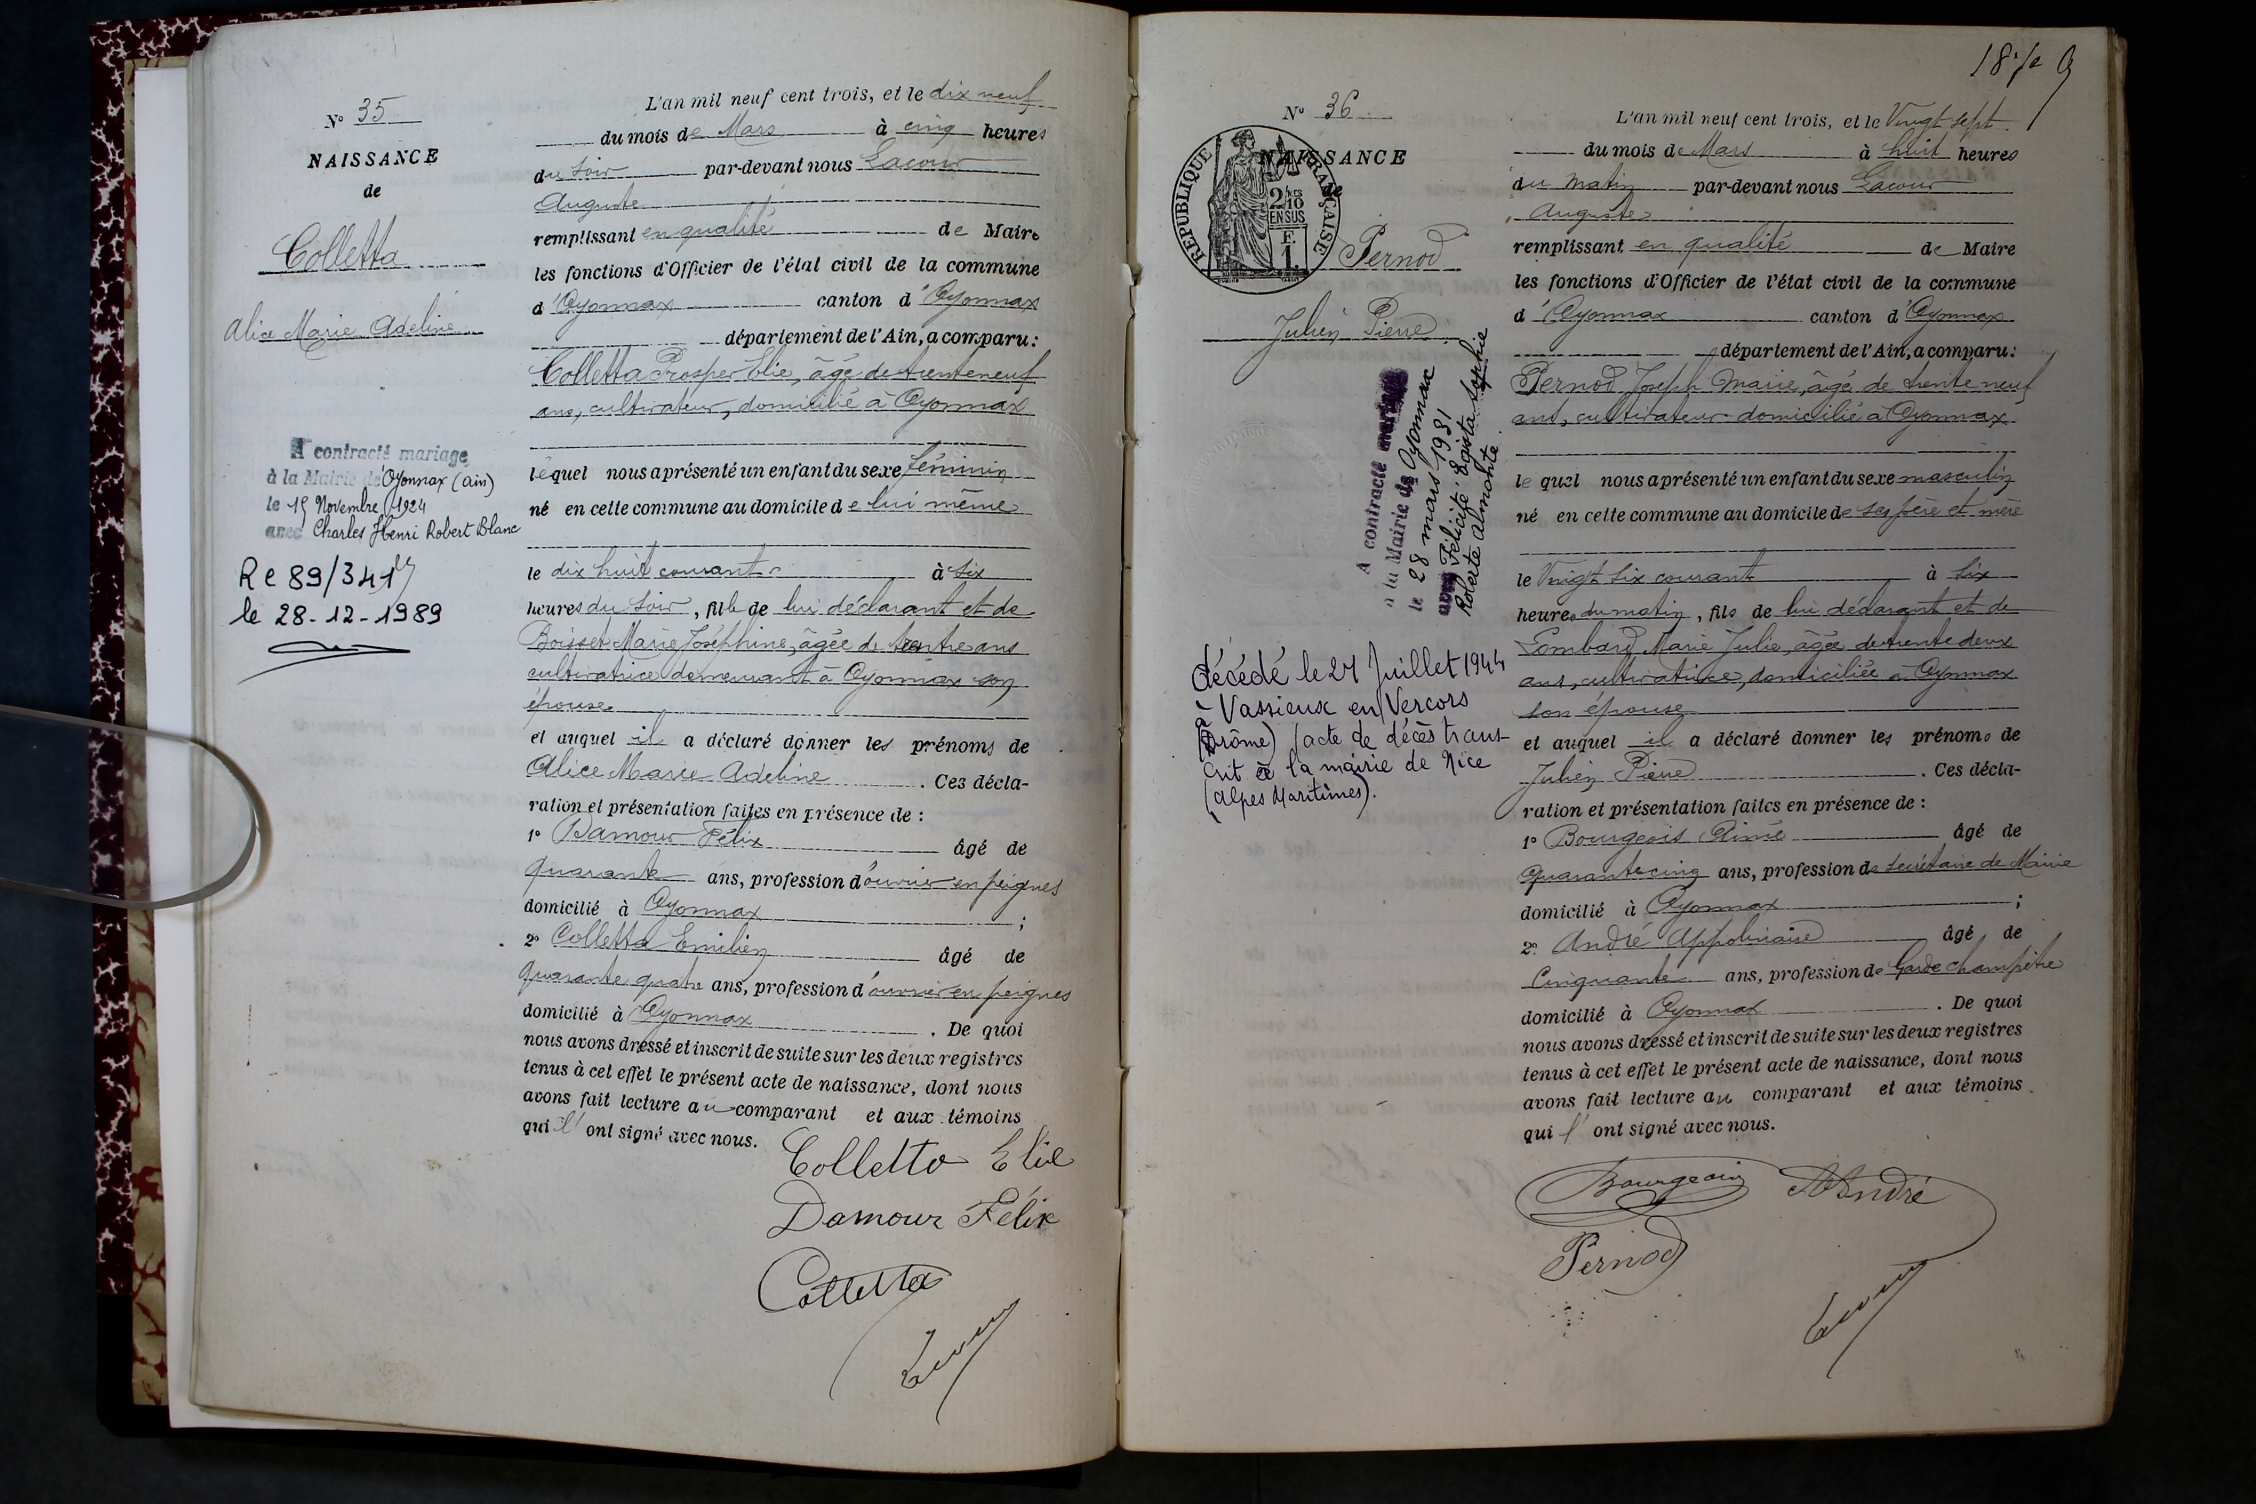 N° 35
NAISSANCE
de
Colletta
Alice Marie Adeline
A contracté mariage
à la Mairie de Oyonnax (Ain)
le 15 Novembre 1924
avec Charles Henri Robert Blanc
Re 89/341
le 28-12-1989
L'an mil neuf cent trois, et le dix neuf
du mois de Mars à cinq heures
du soir par-devant nous Lacour
Auguste
remplissant en qualité de Maire
les fonctions d'Officier de l'état civil de la commune
d'Oyonnax canton d'Oyonnax
département de l'Ain, a comparu:
Colletta Prosper Elie, âgé de trente neuf
ans, cultivateur, domicilié à Oyonnax
lequel nous a présenté un enfant du sexe féminin
né en cette commune au domicile de lui même
le dix huit courant à six
heures du soir, fille de lui déclarant et de
Boisset Marie Joséphine, âgée de trente ans
cultivatrice demeurant à Oyonnax son
épouse
et auquel il a déclaré donner les prénoms de
Alice Marie Adeline. Ces décla-
ration et présentation faites en présence de :
1° Damour Félix âgé de
quarante ans, profession d'ouvrier en peignes
domicilié à Oyonnax ;
2° Colletta Emilien âgé de
quarante quatre ans, profession d'ouvrier en peignes
domicilié à Oyonnax. De quoi
nous avons dressé et inscrit de suite sur les deux registres
tenus à cet effet le présent acte de naissance, dont nous
avons fait lecture au comparant et aux témoins
qui l'ont signé avec nous.
Colletta Elie
Damour Félix
Colletta
18e
N° 36
NAISSANCE
de
REPUBLIQUE FRANÇAISE
2/10
EN SUS
F.
1.
Pernod
Julien Pierre
A contracté mariage
à la Mairie de Oyonnax
le 28 mars 1931
avec Félicité Egista Sophie
Roberte Almonte
décédé le 27 Juillet 1944
à Vassieux en Vercors
(Drôme) (acte de décès trans-
crit à la mairie de Nice
(Alpes Maritimes).
L'an mil neuf cent trois, et le Vingt sept
du mois de Mars à huit heures
du matin par-devant nous Lacour
Auguste
remplissant en qualité de Maire
les fonctions d'Officier de l'état civil de la commune
d'Oyonnax canton d'Oyonnax
département de l'Ain, a comparu:
Pernod Joseph Marie, âgé de trente neuf
ans, cultivateur domicilié à Oyonnax
lequel nous a présenté un enfant du sexe masculin
né en cette commune au domicile de ses père et mère
le Vingt six courant à six
heures du matin, fils de lui déclarant et de
Lombard Marie Julie, âgée de trente deux
ans, cultivatrice, domiciliée à Oyonnax
son épouse
et auquel il a déclaré donner les prénoms de
Julien Pierre. Ces décla-
ration et présentation faites en présence de :
1° Bourgeois Aimé âgé de
Quarante cinq ans, profession de secrétaire de Mairie
domicilié à Oyonnax ;
2° André Appolinaire âgé de
Cinquante ans, profession de Garde champêtre
domicilié à Oyonnax. De quoi
nous avons dressé et inscrit de suite sur les deux registres
tenus à cet effet le présent acte de naissance, dont nous
avons fait lecture au comparant et aux témoins
qui l'ont signé avec nous.
Bourgeois André
Pernod